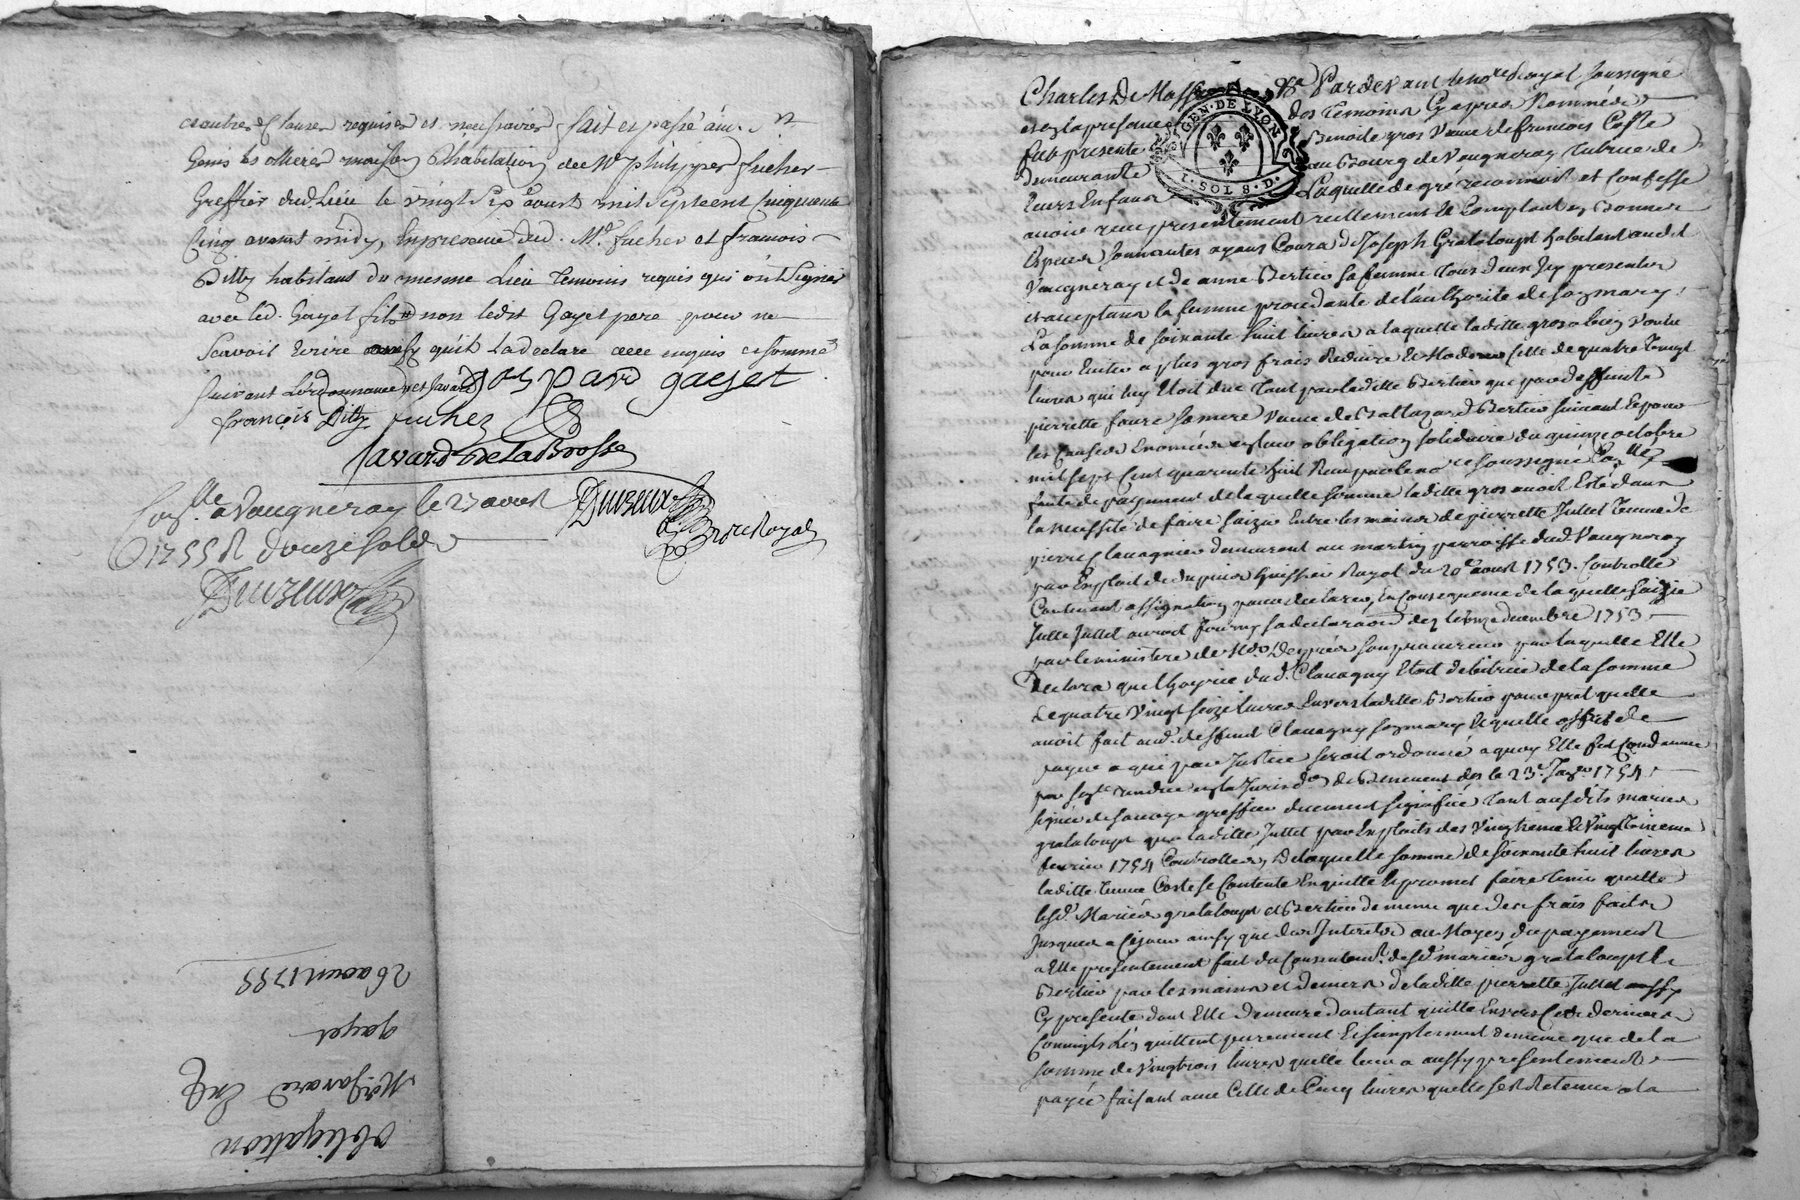 et autres Clauses requises et nécessaires fait et passé au
Genis les ollieres maison d'habitation de Me philippes fucher
Greffier dud. Lieu le vingt Six aoust mil Septcent Cinquante
Cinq avant midy, En presence dud. Me. fucher et francois
Dilly habitant du mesme Lieu Temoins requis qui ont Signé
avec led. Gayet fils non ledit Gayet pere pour ne
Scavoir Ecrire ainsy qu'il La declaré de ce enquis et sommé
suivant Lordonnance
gaspard gayet
françois Dilly fucher
Javard De La Brosse
Conlle. a Vaugneray le 27 aoust
1755 R douze sols
Duizeux
Duizeux
Nre Royal
Obligation
Me Javard
gayet
26 aoust 1755
Charles De Masso
GEN. DE LYON
1. SOL 8. D.
Pardevant le nore Royal soussigné
et en la presence des Temoins Cy apres Nommés
fut presente Benoite gros Veuve de francois Coste
demeurante au Bourg de Vaugneray Tutrice de
Leurs Enfans Laquelle de gré reconnoit et Confesse
avoir reçu presentement reellement et Comptant en Bonnes
Especes Sonnantes ayant Cours de Joseph Grataloup habitant audit
Vaugneray et de anne Bertier sa femme Tous deux Icy presents
et acceptans la femme procedante de l'authorité de son mary
La somme de soixante huit livres a laquelle laditte gros a bien Voulu
pour Eviter a plus gros frais Reduire et Moderer celle de quatre Vingt
livres qui luy Etoit due Tant par laditte Bertier que par deffunte
pierrette faure sa mere Veuve de Baltazard Bertier suivant et pour
les Causes Enoncées en leur obligation solidaire du quinze octobre
mil sept Cent quarante huit Reçu par le nore soussigné Conllé
faute de payement de laquelle somme laditte gros auroit Eté dans
la necessité de faire saizir Entre les mains de pierrette Jullet Veuve de
pierre Clavagnier demeurant au martin parroisse dud. Vaugneray
par Exploit de Dupinis huissier Royal du 20e aoust 1753. Controllé
Contenant assignation pour declarer, En Consequence de laquelle saizie
ditte Jullet auroit fourny sa declaraon des le onze decembre 1753
par le ministere de Me Deyrieu son procureur par laquelle Elle
declara que l'hoyrie dud. Clavagny Etoit debitrice de la somme
de quatre Vingt seize livres Envers laditte Bertier pour pret quelle
avoit fait aud. deffunt Clavagny son mary Laquelle offrit de
payer a qui par Justice seroit ordonné a quoy Elle fut Condamnée
par sentce rendue en la Jurisdon de Benevent des le 23e Janvr 1754
signée de sauvage greffier duement signifiée Tant ausdits mariés
grataloup qua laditte Jullet par Exploits des Vingtieme et Vingt troisieme
fevrier 1754 Controllés, De laquelle somme de soixante huit livres
laditte Veuve Coste se Contente En quitte et promet faire tenir quitte
lesd. Mariés grataloup et Bertier de meme que des frais faits
Jusques a Cejour ainsy que des Interets au Moyen du payement
a Elle presentement fait du Consentemt. desd. mariés grataloup et
Bertier par les mains et deniers de laditte pierrette Jullet aussy
Cy presente dont Elle demeure d'autant quitte Envers Ces derniers
Comme ils L'en quittent purement et simplement de meme que de la
somme de Vingt trois livres quelle leur a aussy presentement
payée faisant avec Celle de Cinq livres quelle s'est Retenue a la